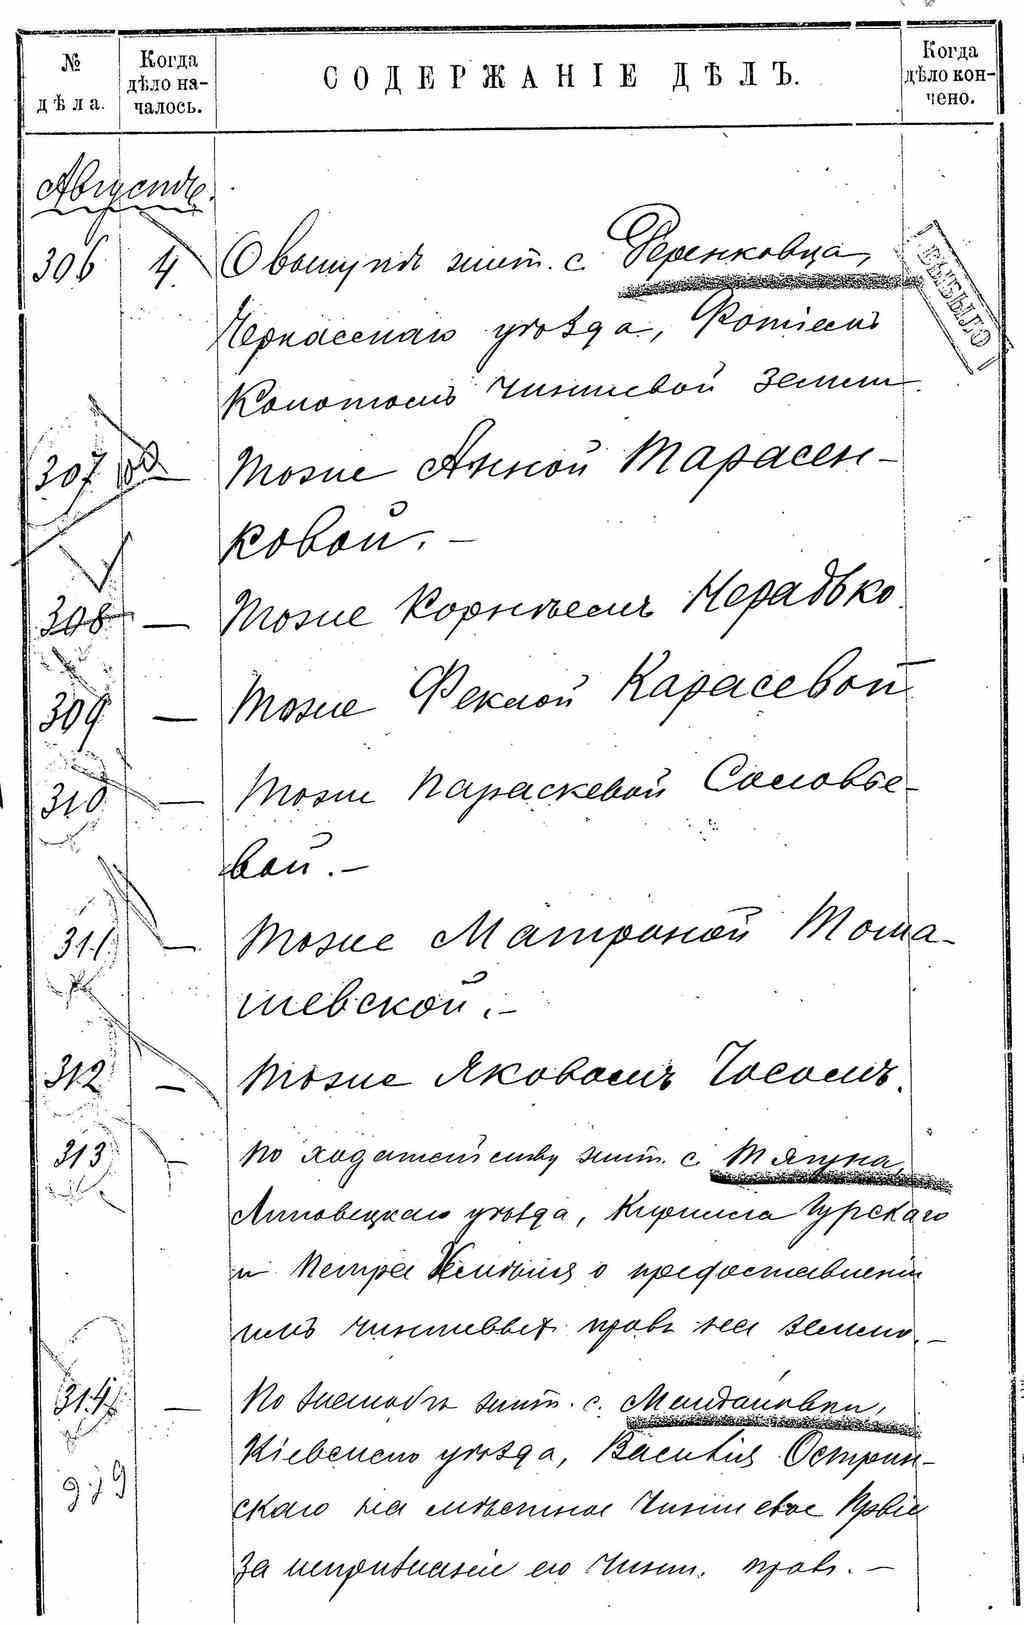 № дѣла.
Когда дѣло началось.
СОДЕРЖАНІЕ ДѢЛЪ.
Когда дѣло кончено.
Августъ.
306 4. О выкупѣ жит. с. Деренковца,
ВЫБЫЛО
Черкасскаго уѣзда, Фотіемъ
Конотомъ чиншевой земли.
307 — Тоже Анной Тарасен-
ковой. —
308 — Тоже Корнѣемъ Нерадько.
309 — Тоже Феклой Карасевой
310 — Тоже Параскевой Соловье-
вой. —
311 — Тоже Матроной Тома-
шевской. —
312 — Тоже Яковомъ Чосомъ.
313 — По ходатайству жит. с. Тягуна,
Липовецкаго уѣзда, Кирилла Гурскаго
и Петра о предоставленіи
имъ чиншевыхъ правъ на землю. —
314 — По жалобѣ жит. с. Мандаловки,
Кіевскаго уѣзда, Василія Острин-
скаго на мѣстное Чиншевое Прис.
За непризнаніе его Чинш. правъ. —